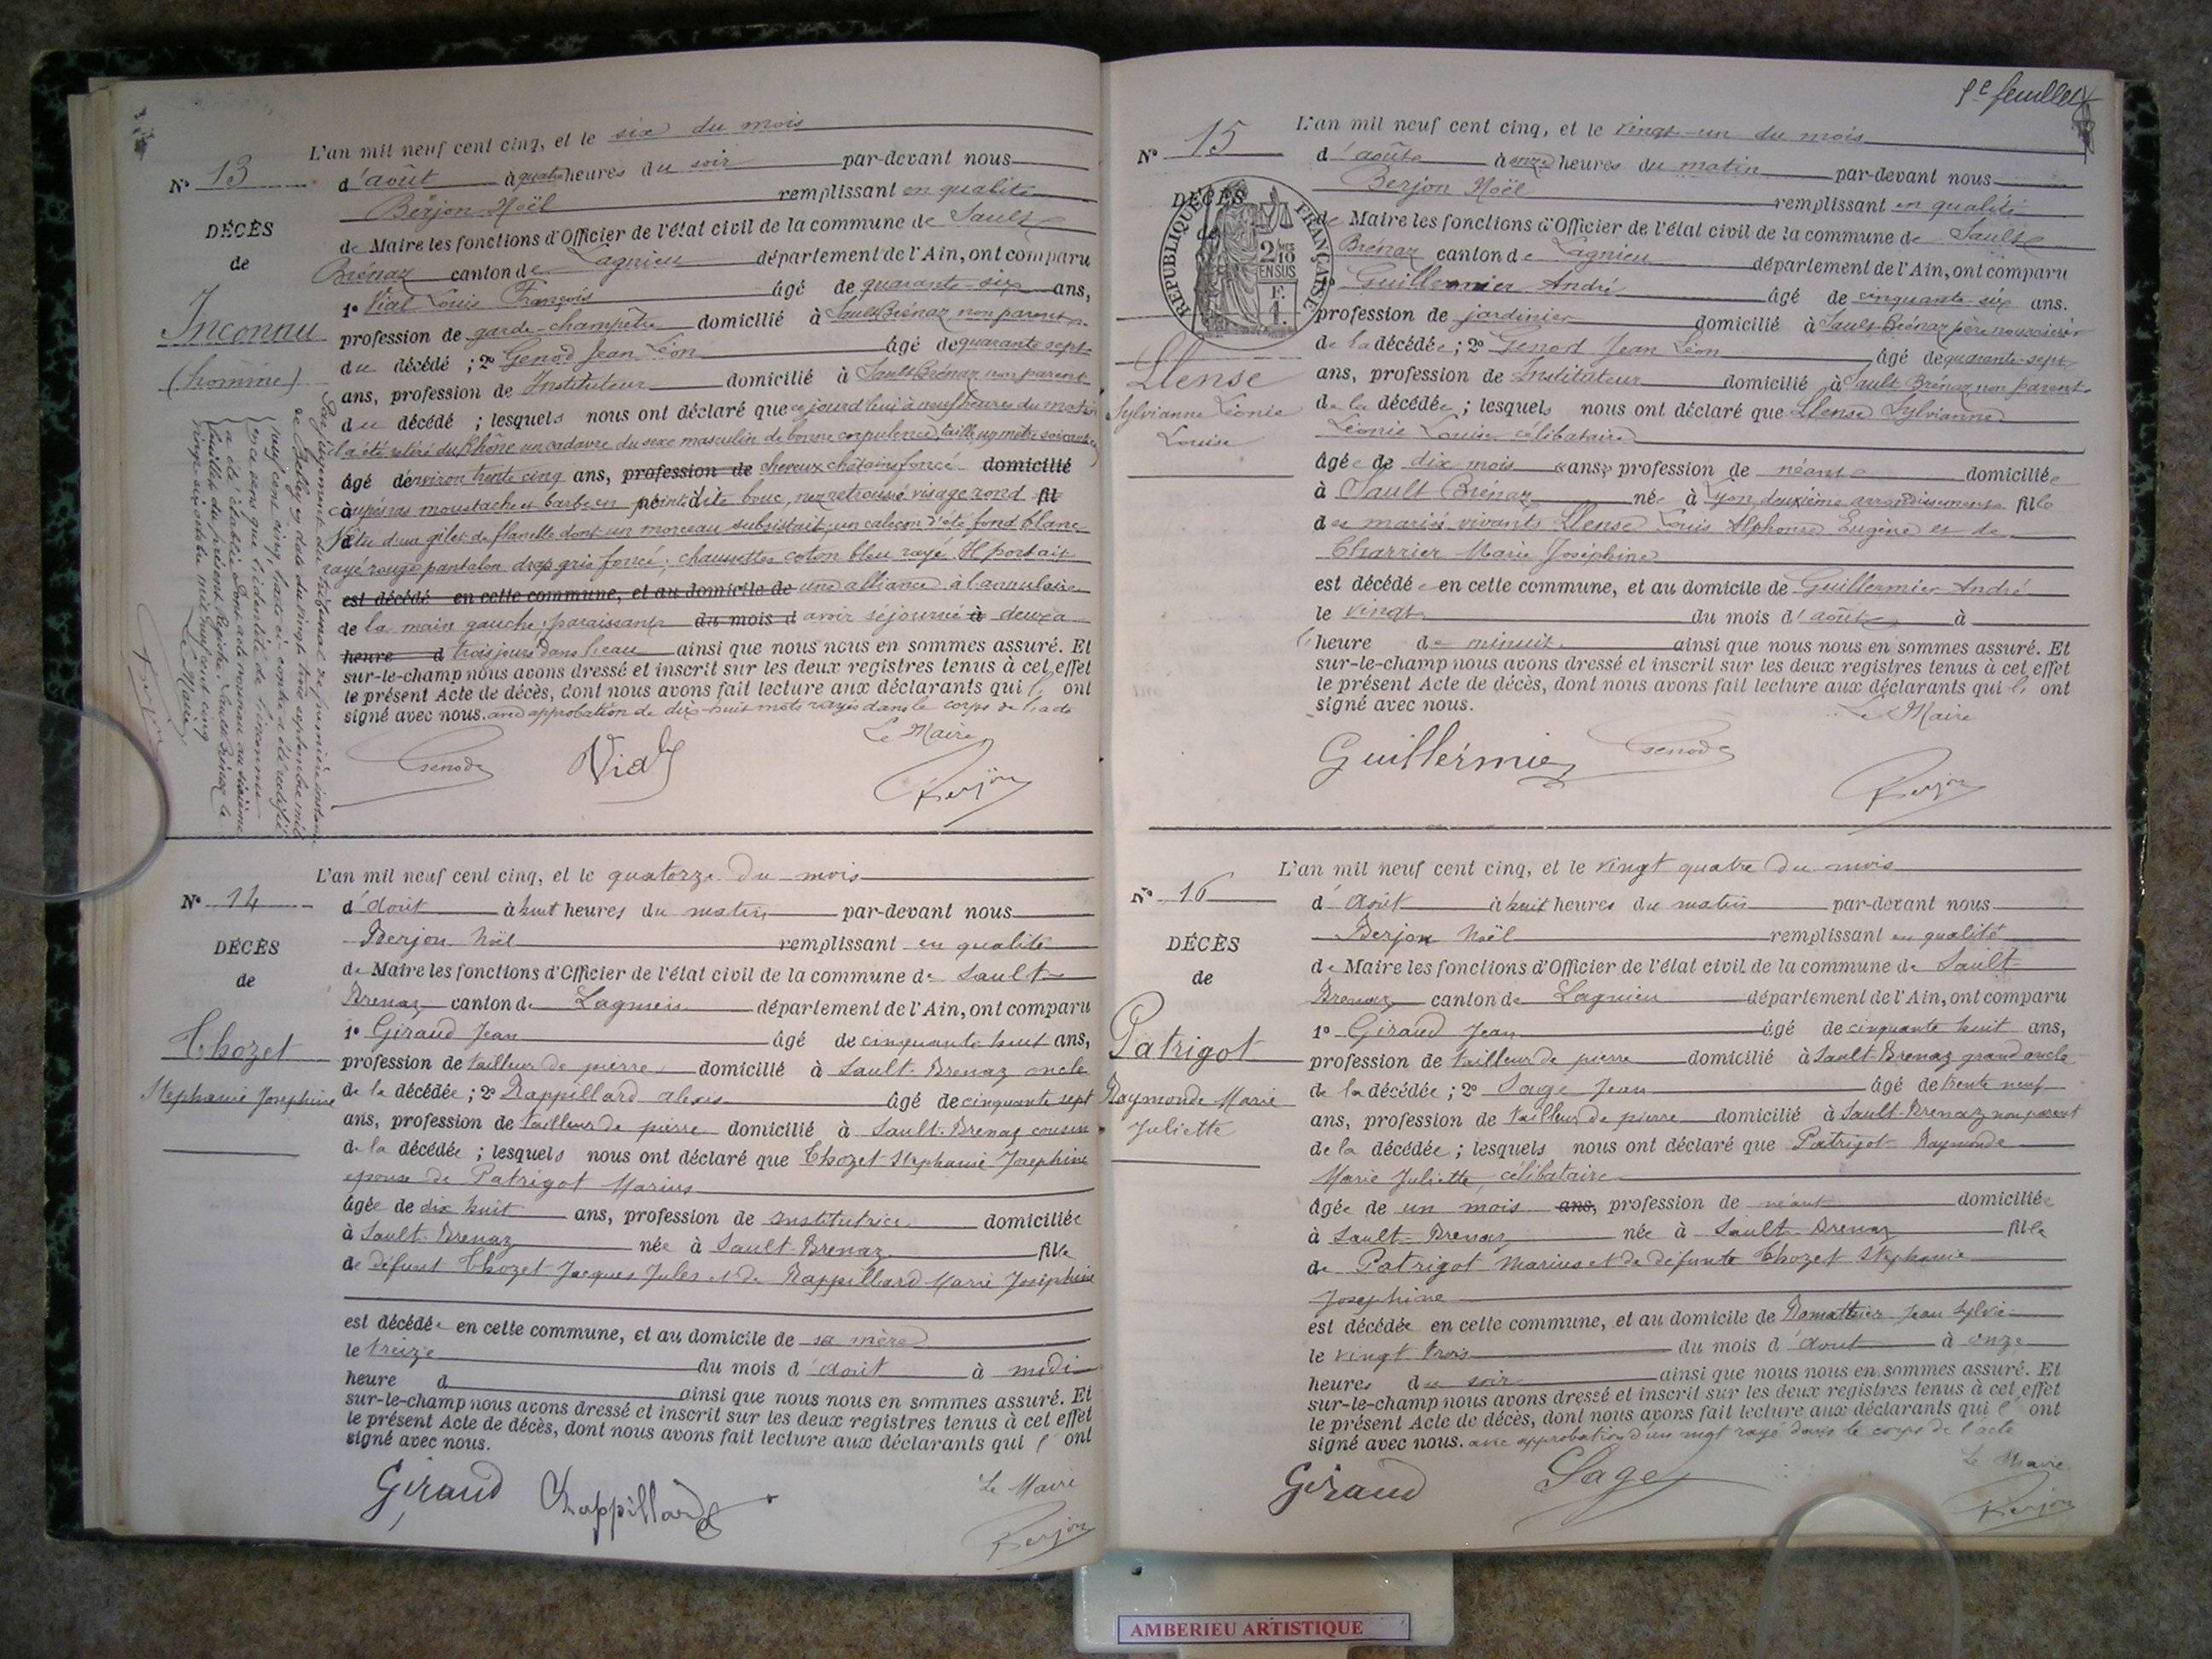 L'an mil neuf cent cinq, et le six du mois
N° 13
d'août à quatre heures du soir par-devant nous
Berjon Noël remplissant en qualité
DÉCÈS
de Maire les fonctions d'Officier de l'état civil de la commune de Sault
de
Brénaz canton de Lagnieu département de l'Ain, ont comparu
1° Vial Louis François âgé de quarante-six ans,
Inconnu
profession de garde-champêtre domicilié à Sault Brénaz non parent
du décédé ; 2° Genod Jean Léon âgé de quarante sept
(homme)
ans, profession de Instituteur domicilié à Sault Brénaz non parent
du décédé ; lesquels nous ont déclaré que ce jourd'hui à neuf heures du matin
il a été retiré du Rhône un cadavre du sexe masculin de bonne corpulence, taille un mètre soixante
âgé d'environ trente cinq ans, profession de cheveux châtains foncé domicilié
à coupés ras moustache et barbe en pointe dite bouc, nez retroussé visage rond fil
vêtu d'un gilet de flanelle dont un morceau subsistait, un caleçon d'été fond blanc
rayé rouge pantalon drap gris foncé; chaussettes coton bleu rayé. Il portait
est décédé en cette commune, et au domicile de une alliance à l'annulaire
de la main gauche; paraissant du mois d avoir séjourné à deux a
heure d trois jours dans l'eau ainsi que nous nous en sommes assuré. Et
sur-le-champ nous avons dressé et inscrit sur les deux registres tenus à cet effet
le présent Acte de décès, dont nous avons fait lecture aux déclarants qui l' ont
signé avec nous. and approbation de dix-huit mots rayés dans le corps de l'acte
Le Maire
Genod Vial Berjon
Par jugement du tribunal de première instance
de Belley en date du vingt trois septembre mil
neuf cent cinq, l'acte ci-contre a été rectifié
en ce sens que l'identité de l'inconnu
a été établie. Dont acte mention au sixième
feuillet du présent Registre. Sault-Brénaz le
vingt six octobre mil neuf cent cinq
Le Maire
Berjon
L'an mil neuf cent cinq, et le quatorze du mois
N° 14
d'Aout à huit heures du matin par-devant nous
Berjon Noël remplissant en qualité
DÉCÈS
de Maire les fonctions d'Officier de l'état civil de la commune de Sault
de
Brenaz canton de Lagnieu département de l'Ain, ont comparu
1° Giraud Jean âgé de cinquante huit ans,
Thozet
profession de tailleur de pierre domicilié à Sault-Brenaz oncle
Stephanie Josephine
de la décédée ; 2° Rappillard alexis âgé de cinquante sept
ans, profession de tailleur de pierre domicilié à Sault-Brenaz cousin
de la décédée ; lesquels nous ont déclaré que Thozet Stephanie Josephine
epouse de Patrigot Marius
âgée de dix huit ans, profession de institutrice domiciliée
à Sault-Brenaz née à Sault-Brenaz fille
de défunt Thozet Jacques Jules et de Rappillard Marie Josephine
est décédée en cette commune, et au domicile de sa mère
le treize du mois d'Aout à midi
heure d ainsi que nous nous en sommes assuré. Et
sur-le-champ nous avons dressé et inscrit sur les deux registres tenus à cet effet
le présent Acte de décès, dont nous avons fait lecture aux déclarants qui l' ont
signé avec nous.
Le Maire
Giraud Rappillard Berjon
9e feuillet
L'an mil neuf cent cinq, et le vingt-un du mois
N° 15
d'août à onze heures du matin par-devant nous
Berjon Noël remplissant en qualité
DÉCÈS
de
RÉPUBLIQUE FRANÇAISE
2/10 EN SUS
F. 1.
de Maire les fonctions d'Officier de l'état civil de la commune de Sault
Brénaz canton de Lagnieu département de l'Ain, ont comparu
1° Guillermier André âgé de cinquante six ans.
profession de jardinier domicilié à Sault-Brénaz père nourricier
de la décédée ; 2° Genod Jean Léon âgé de quarante-sept
Llense
Sylvianne Léonie
Louise
ans, profession de Instituteur domicilié à Sault Brénaz non parent
de la décédée ; lesquels nous ont déclaré que Llense Sylvianne
Léonie Louise célibataire
âgée de dix mois ans, profession de néant domiciliée
à Sault Brénaz née à Lyon, deuxième arrondissement fille
des mariés vivants Llense Louis Alphonse Eugène et de
Charrier Marie Joséphine
est décédée en cette commune, et au domicile de Guillermier André
le vingt du mois d'août à
l'heure de minuit ainsi que nous nous en sommes assuré. Et
sur-le-champ nous avons dressé et inscrit sur les deux registres tenus à cet effet
le présent Acte de décès, dont nous avons fait lecture aux déclarants qui l' ont
signé avec nous.
Le Maire
Guillermier Genod Berjon
L'an mil neuf cent cinq, et le vingt quatre du mois
N° 16
d'Aout à huit heures du matin par-devant nous
Berjon Noël remplissant en qualité
DÉCÈS
de Maire les fonctions d'Officier de l'état civil de la commune de Sault
de
Brenaz canton de Lagnieu département de l'Ain, ont comparu
1° Giraud Jean âgé de cinquante huit ans,
Patrigot
profession de tailleur de pierre domicilié à Sault-Brenaz grand oncle
Raymonde Marie
Juliette
de la décédée ; 2° Sage Jean âgé de trente neuf
ans, profession de tailleur de pierre domicilié à Sault-Brenaz non parent
de la décédée ; lesquels nous ont déclaré que Patrigot Raymonde
Marie Juliette, célibataire
âgée de un mois ans, profession de néant domiciliée
à Sault-Brenaz née à Sault-Brenaz fille
de Patrigot Marius et de défunte Thozet Stephanie
Josephine
est décédée en cette commune, et au domicile de Jean Sylvie
le vingt trois du mois d'Aout à onze
heures du soir ainsi que nous nous en sommes assuré. Et
sur-le-champ nous avons dressé et inscrit sur les deux registres tenus à cet effet
le présent Acte de décès, dont nous avons fait lecture aux déclarants qui l' ont
signé avec nous. avec approbation d'un mot rayé dans le corps de l'acte
Le Maire
Giraud Sage Berjon
AMBERIEU ARTISTIQUE